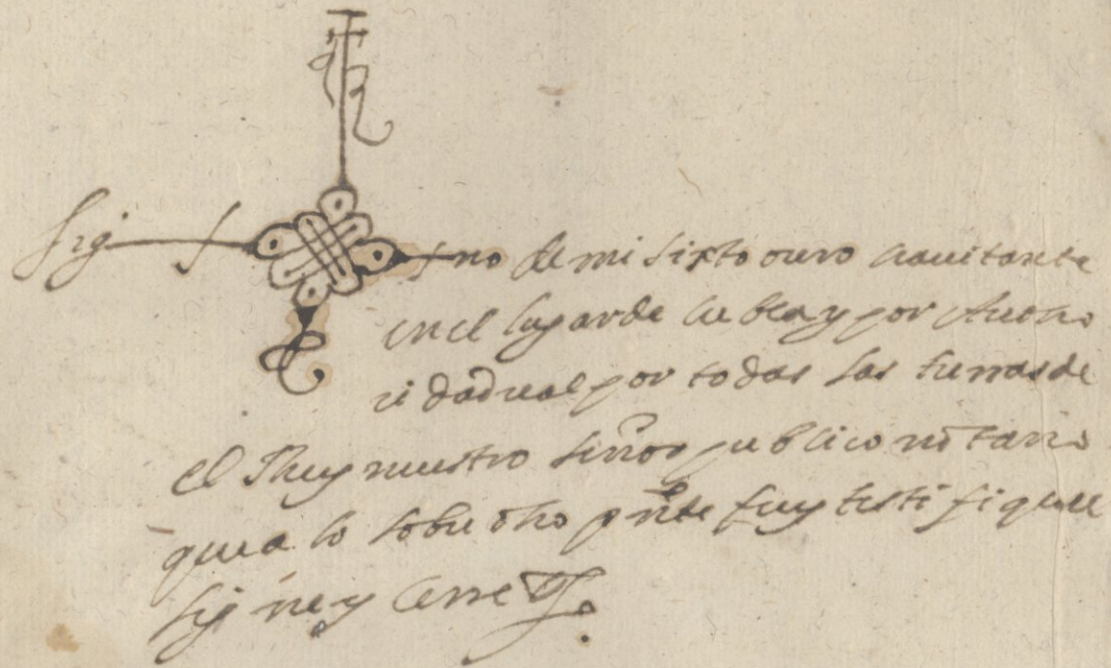 Sig no de mi sixto ouro auitante
en el lugar de cubla y por Autho
ridad real por todas las tierras de
el Rey nuestro señor publico notario
que a lo sobre dho pnte fuy testifique
signe y cerre